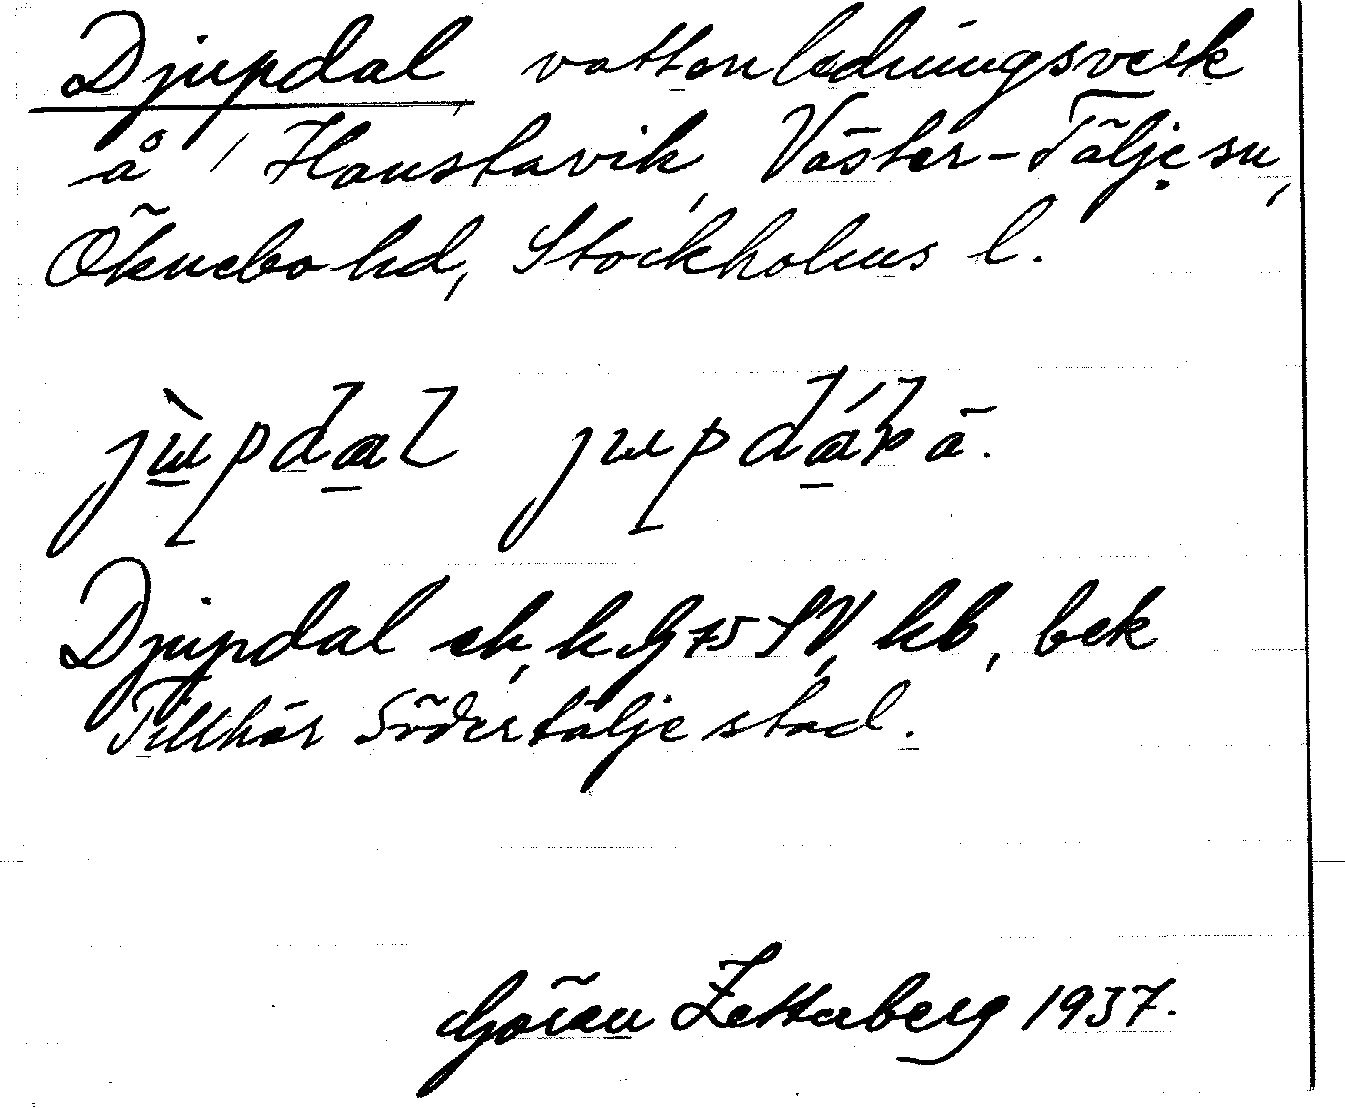 Djupdal vattenledningsverk
å / Hanstavik, Väster-Tälje sn,
Öknebo hd, Stockholms l.
jùpdal jupdálɐ.
Djupdal ek, h. G 75 SV, kb, bek
Tillhör Södertälje stad.
Göran Zetterberg 1937.